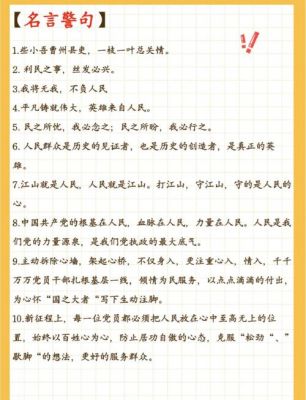 【名言警句】
1.些小吾曹州县吏，一枝一叶总关情。
2. 利民之事，丝发必兴。
3.我将无我，不负人民
4.平凡铸就伟大，英雄来自人民。
5. 民之所忧，我必念之；民之所盼，我必行之。
6. 人民群众是历史的见证者，也是历史的创造者，是真正的英
雄。
7.江山就是人民，人民就是江山。打江山，守江山，守的是人民的
心。
8.中国共产党的根基在人民，血脉在人民，力量在人民。人民是我
们党的力量源泉，是我们党执政的最大底气。
9.主动拆除心墙，架起心桥，不仅身入，更注重心入，情入，千千
万万党员干部扎根基层一线，倾情为民服务，以点点滴滴的付出，
为心怀“国之大者”写下生动注脚。
10.新征程上，每一位党员都必须把人民放在心中至高无上的位
置，始终以百姓心为心，防止居功自傲的心态，克服“松劲“、”
歇脚“的想法，更好的服务群众。